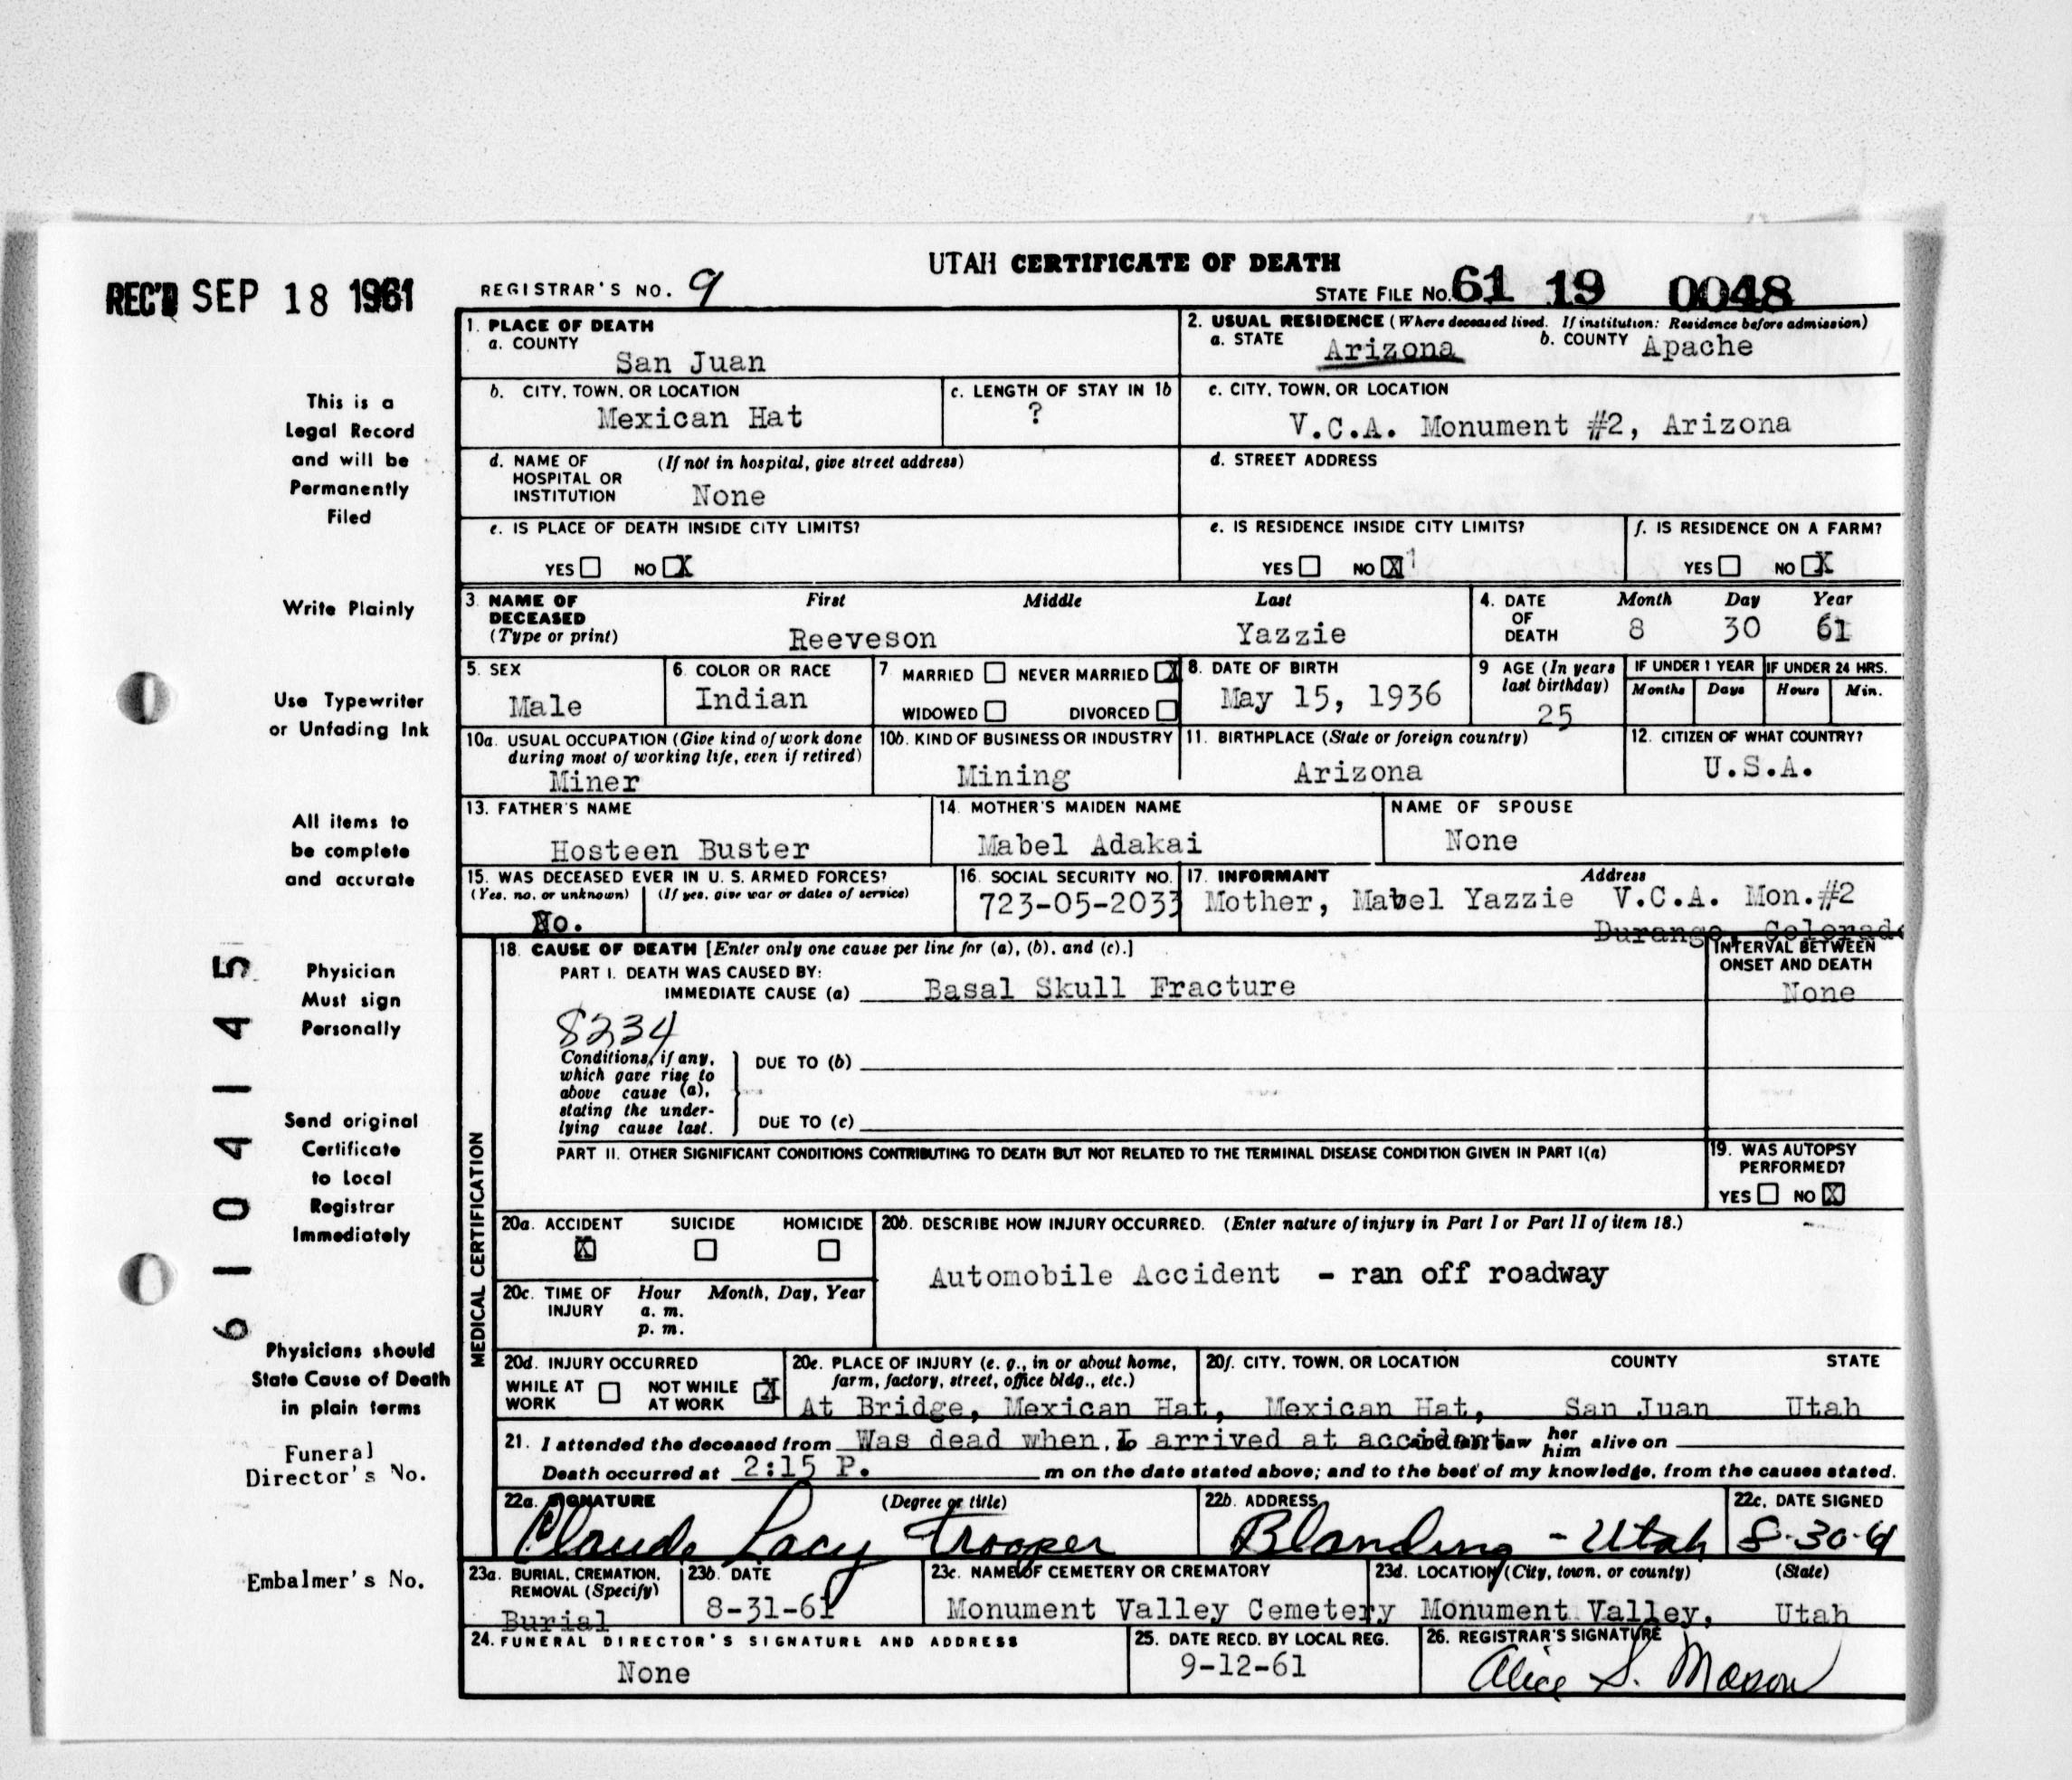 UTAH CERTIFICATE OF DEATH
REC'D SEP 18 1961
REGISTRAR'S NO. 9
STATE FILE NO. 61 19 0048
This is a
Legal Record
and will be
Permanently
Filed
Write Plainly
Use Typewriter
or Unfading Ink
All items to
be complete
and accurate
Physician
Must sign
Personally
Send original
Certificate
to Local
Registrar
Immediately
Physicians should
State Cause of Death
in plain terms
Funeral
Director's No.
Embalmer's No.
61 04 1 45
1. PLACE OF DEATH
a. COUNTY
San Juan
b. CITY, TOWN, OR LOCATION
Mexican Hat
c. LENGTH OF STAY IN 1b
?
d. NAME OF (If not in hospital, give street address)
HOSPITAL OR
INSTITUTION None
e. IS PLACE OF DEATH INSIDE CITY LIMITS?
YES NO X
2. USUAL RESIDENCE (Where deceased lived. If institution: Residence before admission)
a. STATE Arizona b. COUNTY Apache
c. CITY, TOWN, OR LOCATION
V.C.A. Monument #2, Arizona
d. STREET ADDRESS
e. IS RESIDENCE INSIDE CITY LIMITS?
YES NO X
f. IS RESIDENCE ON A FARM?
YES NO X
3. NAME OF DECEASED (Type or print)
First Middle Last
Reeveson Yazzie
4. DATE OF DEATH
Month Day Year
8 30 61
5. SEX
Male
6. COLOR OR RACE
Indian
7. MARRIED NEVER MARRIED X
WIDOWED DIVORCED
8. DATE OF BIRTH
May 15, 1936
9 AGE (In years last birthday)
25
IF UNDER 1 YEAR
Months Days
IF UNDER 24 HRS.
Hours Min.
10a. USUAL OCCUPATION (Give kind of work done
during most of working life, even if retired)
Miner
10b. KIND OF BUSINESS OR INDUSTRY
Mining
11. BIRTHPLACE (State or foreign country)
Arizona
12. CITIZEN OF WHAT COUNTRY?
U.S.A.
13. FATHER'S NAME
Hosteen Buster
14. MOTHER'S MAIDEN NAME
Mabel Adakai
NAME OF SPOUSE
None
15. WAS DECEASED EVER IN U. S. ARMED FORCES?
(Yes, no, or unknown) (If yes, give war or dates of service)
No.
16. SOCIAL SECURITY NO.
723-05-2033
17. INFORMANT Address
Mother, Mabel Yazzie V.C.A. Mon.#2
Durango, Colorado
MEDICAL CERTIFICATION
18. CAUSE OF DEATH [Enter only one cause per line for (a), (b), and (c).]
PART I. DEATH WAS CAUSED BY:
IMMEDIATE CAUSE (a) Basal Skull Fracture
INTERVAL BETWEEN
ONSET AND DEATH
None
8234
Conditions, if any,
which gave rise to
above cause (a),
stating the under-
lying cause last.
DUE TO (b)
DUE TO (c)
PART II. OTHER SIGNIFICANT CONDITIONS CONTRIBUTING TO DEATH BUT NOT RELATED TO THE TERMINAL DISEASE CONDITION GIVEN IN PART I(a)
19. WAS AUTOPSY
PERFORMED?
YES NO X
20a. ACCIDENT SUICIDE HOMICIDE
X
20b. DESCRIBE HOW INJURY OCCURRED. (Enter nature of injury in Part I or Part II of item 18.)
Automobile Accident - ran off roadway
20c. TIME OF INJURY Hour Month, Day, Year
a. m.
p. m.
20d. INJURY OCCURRED
WHILE AT WORK NOT WHILE AT WORK X
20e. PLACE OF INJURY (e. g., in or about home,
farm, factory, street, office bldg., etc.)
At Bridge, Mexican Hat,
20f. CITY, TOWN, OR LOCATION COUNTY STATE
Mexican Hat, San Juan Utah
21. I attended the deceased from Was dead when I arrived at accident and last saw her him alive on
Death occurred at 2:15 P. m on the date stated above; and to the best of my knowledge, from the causes stated.
22a. SIGNATURE (Degree or title)
Claude Lacy Trooper
22b. ADDRESS
Blanding - Utah
22c. DATE SIGNED
8-30-61
23a. BURIAL, CREMATION,
REMOVAL (Specify)
Burial
23b. DATE
8-31-61
23c. NAME OF CEMETERY OR CREMATORY
Monument Valley Cemetery
23d. LOCATION (City, town, or county) (State)
Monument Valley, Utah
24. FUNERAL DIRECTOR'S SIGNATURE AND ADDRESS
None
25. DATE RECD. BY LOCAL REG.
9-12-61
26. REGISTRAR'S SIGNATURE
Alice S. Maxon